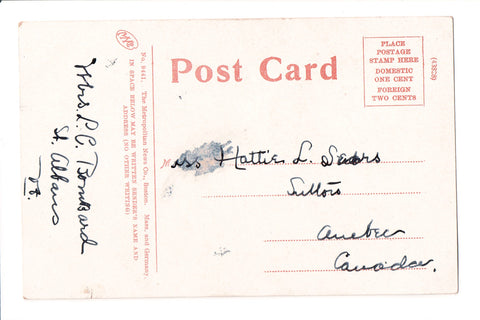 Mrs L. C. Bombard
St. Albans
Vt.
No. 9441. The Metropolitan News Co., Boston. Mass, and Germany.
IN SPACE BELOW MAY BE WRITTEN SENDER'S NAME AND
ADDRESS (NO OTHER WRITING)
Post Card
PLACE
POSTAGE
STAMP HERE
DOMESTIC
ONE CENT
FOREIGN
TWO CENTS
Miss Hattie L. Sears
Quebec
Canada.